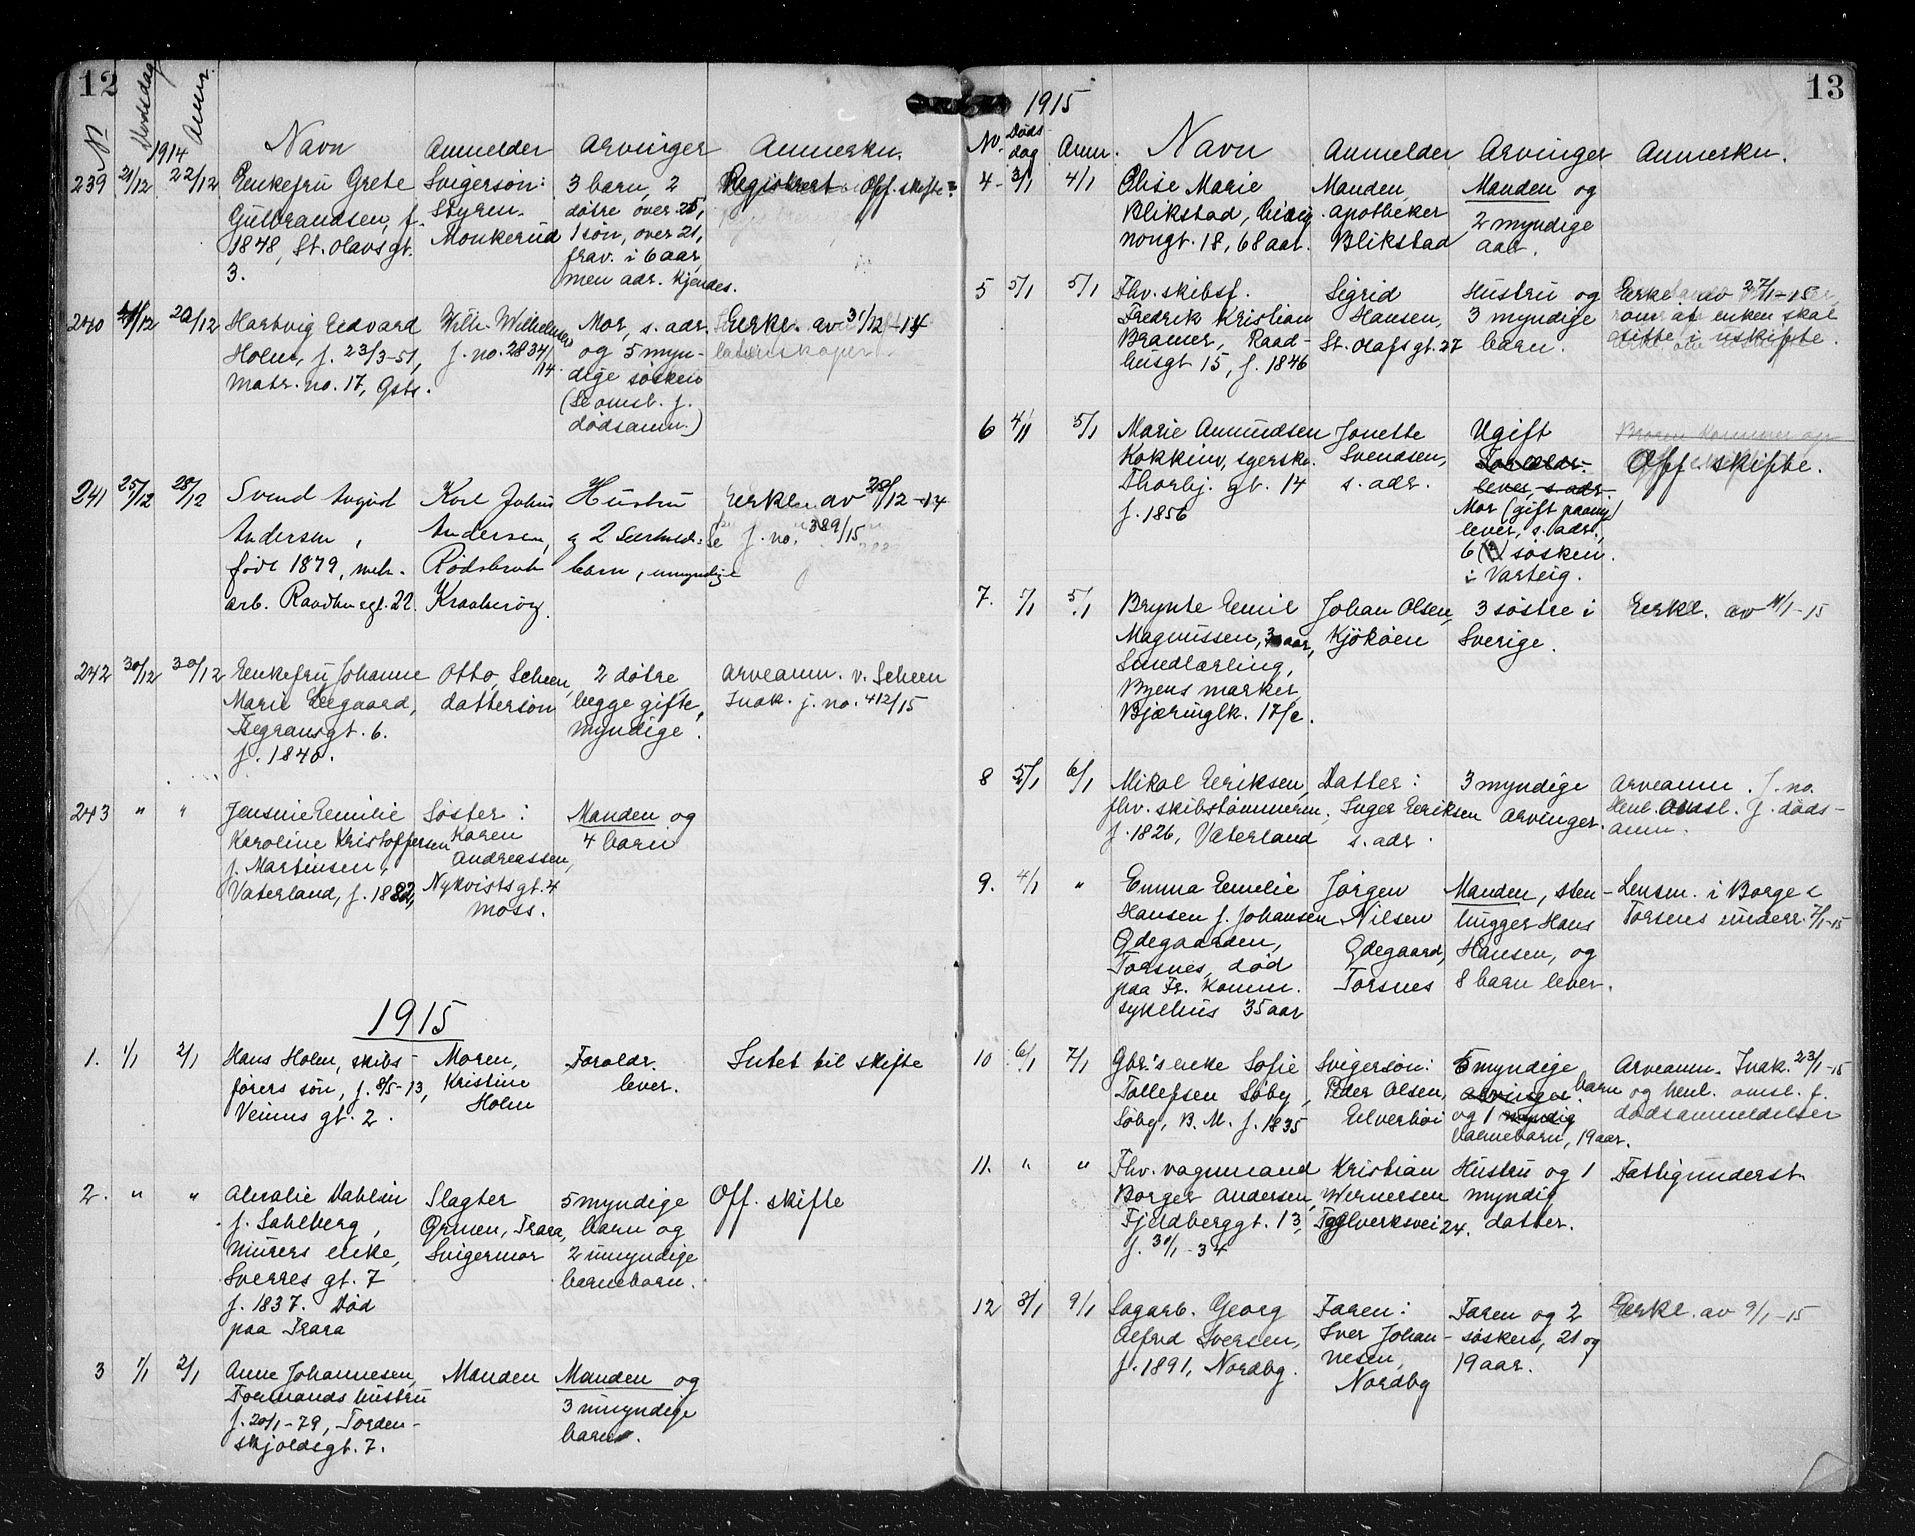 12
No Dødsdag Anm.
1914
Navn Anmelder Arvinger Anmerkn.
239 21/12 22/12 Enkefru Grete Svigersøn: 3 barn, 2 Registrert Off. skifte
Gulbrandsen, f. Styrm. døtre over 25,
1848, St. Olavsgt. Monkerud 1 søn, over 21,
3. frav. i 6 aar,
men adr. kjendes.
240 21/12 22/12 Hartvig Edvard Wilh. Wilhelmsen Mor, s. adr. Eerkl. av 31/12-14
Holm, f. 23/3-51, j. no. 2834/14. og 5 myn-
Matr. no. 17, Gsts. dige søsken
(Se omsl. f.
dødsanm.)
241 25/12 28/12 Svend August Karl Johan Hustru Eerkl. av 28/12-14
Andersen, Andersen, g 2 Se j. no. 389/15
født 1879, mek. Rødsbruk barn, umyndige
arb. Raadhusgt. 22. Kraakerøy.
242 30/12 30/12 Enkefru Johanne Otto Scheen, 2 døtre, Arveanm. v. Scheen
Marie Eegaard, dattersøn begge gifte, Indk. j. no. 412/15
Hegransgt. 6. myndige.
f. 1840.
243 " " Jensine Emilie Søster: Manden og
Karoline Kristoffersen Karen 4 barn
f. Martinsen, Andreassen,
Vaterland, f. 1882, Nykvistsgt. 4
Moss.
1915
1. 1/1 2/1 Hans Holm, skibs- Moren, Foreldr. Intet til skifte
førers søn, f. 8/5-13, Kristine lever.
Venus gt. 2. Holm
2. " " Amalie Dahlin Slagter 5 myndige Off. skifte
f. Sahlberg, Ørmen, Trara, barn og
murers enke, Svigermor 2 umyndige
Sverres gt. 7 barnebarn.
f. 1837. Død
paa Trara
3 1/1 2/1 Anne Johannesen, Manden Manden og
Formands hustru 3 umyndige
f. 20/1-79, Torden- barn.
skjoldsgt. 7.
13
1915
No. Dødsdag Anm. Navn Anmelder Arvinger Anmerkn.
4 - 3/1 4/1 Elise Marie Manden, Manden og
Blikstad, apotheker 2 myndige
nongt. 18, 68 aar. Blikstad
5 5/1 5/1 Fhv. skibsf. Sigrid Hustru og Eerkl. av 27/1-15
Fredrik Kristian Hansen, 3 myndige om at enken skal
Bramer, Raad- St. Olafsgt. 27 barn. sitte i uskifte.
husgt 15, f. 1846
6 4/1 5/1 Marie Amundsen Jonette Ugift
Kokkim, syerske. Svendsen, Foreldr. Off. skifte.
Thorbj. gt. 14 s. adr. lever, s. adr.
f. 1856 Mor (gift paany)
lever, s. adr.,
6 søsken.
i Varteig.
7. 5/1 5/1 Brynte Emil Johan Olsen, 3 søstre i Eerkl. av 11/1-15
Magnussen, aar, Kjøkøen Sverige.
Smedlærling,
Byens marker
Bjæringlk. 17/c.
8 5/1 6/1 Mikal Eriksen, Datter: 3 myndige Arveanm. J. no.
fhv. skibstømmerm. Inger Eriksen arvinger. Henl. omsl. f. døds-
f. 1826, Vaterland s. adr. anm.
9. 4/1 " Emma Emelie Jørgen Manden, sten- Lensm. i Borge &
Hansen f. Johansen Nilsen hugger Hans Torsnes underr. 7/1-15
Ødegaarden, Ødegaard, Hansen, og
Torsnes, død Torsnes 8 barn lever.
paa Fr. komm.
sykehus 35 aar
10 6/1 7/1 Gbr.'s enke Sofie Svigersøn: 5 myndige Arveanm. Indk. 23/1-15
Tollefsen Søby, Peder Olsen, arvinger. barn og henl. omsl. f.
Søby, B. M. f. 1835 Elverhøi og 1 myndig dødsanmeldelser
barnebarn, 19 aar.
11. " " Fhv. vognmand Kristian Hustru og 1 Fattigunderst.
Borger Andersen, Wernersen myndig
Fjeldberggt. 13, Teglverksvei 24. datter.
f. 30/1-34
12 8/1 9/1 Sagarb. Georg Faren: Faren og 2 Eerkl. av 9/1-15
Alfred Iversen, Iver Johan- søsken, 21 og
f. 1891, Nordbg. nesen, 19 aar.
Nordbg